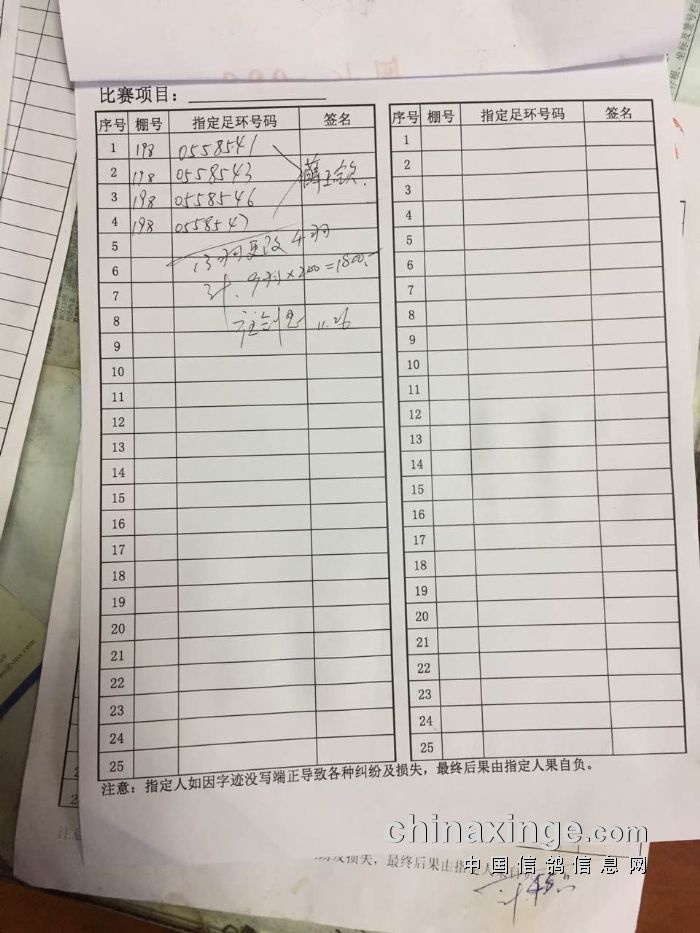 比赛项目：
序号 棚号 指定足环号码 签名
1 198 0558541
2 198 0558543
3 198 0558546
4 198 0558547
5
6
7
8
9
10
11
12
13
14
15
16
17
18
19
20
21
22
23
24
25
13羽更改4羽
计 9羽×200=1800.-
11.26
序号 棚号 指定足环号码 签名
1
2
3
4
5
6
7
8
9
10
11
12
13
14
15
16
17
18
19
20
21
22
23
24
25
注意：指定人如因字迹没写端正导致各种纠纷及损失，最终后果由指定人果自负。
chinaxinge.com
中国信鸽信息网
纷及损失，最终后果由指定人